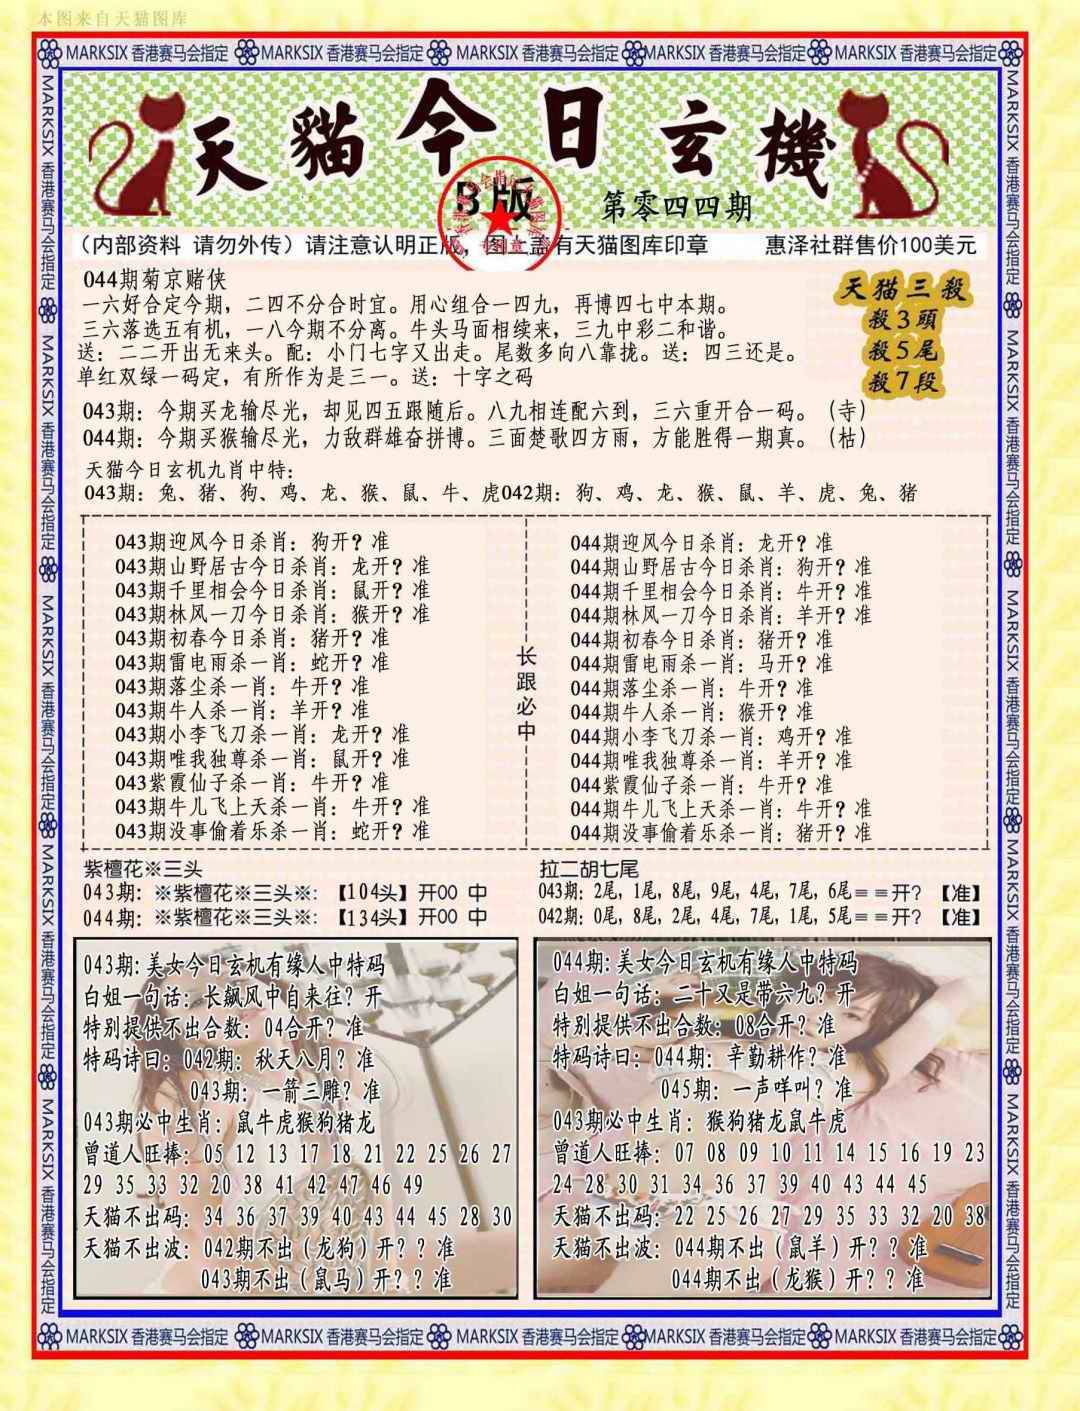 本图来自天猫图库
MARKSIX 香港赛马会指定 MARKSIX 香港赛马会指定 MARKSIX 香港赛马会指定 MARKSIX 香港赛马会指定 MARKSIX 香港赛马会指定
天貓今日玄機
B版
第零四四期
(内部资料 请勿外传)请注意认明正版,图上盖有天猫图库印章 惠泽社群售价100美元
044期菊京赌侠
一六好合定今期,二四不分合时宜。用心组合一四九,再博四七中本期。
三六落选五有机,一八今期不分离。牛头马面相续来,三九中彩二和谐。
送:二二开出无来头。配:小门七字又出走。尾数多向八靠拢。送:四三还是。
单红双绿一码定,有所作为是三一。送:十字之码
天猫三殺
殺3頭
殺5尾
殺7段
043期:今期买龙输尽光,却见四五跟随后。八九相连配六到,三六重开合一码。(寺)
044期:今期买猴输尽光,力敌群雄奋拼博。三面楚歌四方雨,方能胜得一期真。(枯)
天猫今日玄机九肖中特:
043期:兔、猪、狗、鸡、龙、猴、鼠、牛、虎042期:狗、鸡、龙、猴、鼠、羊、虎、兔、猪
043期迎风今日杀肖:狗开?准
043期山野居古今日杀肖:龙开?准
043期千里相会今日杀肖:鼠开?准
043期林风一刀今日杀肖:猴开?准
043期初春今日杀肖:猪开?准
043期雷电雨杀一肖:蛇开?准
043期落尘杀一肖:牛开?准
043期牛人杀一肖:羊开?准
043期小李飞刀杀一肖:龙开?准
043期唯我独尊杀一肖:鼠开?准
043紫霞仙子杀一肖:牛开?准
043期牛儿飞上天杀一肖:牛开?准
043期没事偷着乐杀一肖:蛇开?准
长跟必中
044期迎风今日杀肖:龙开?准
044期山野居古今日杀肖:狗开?准
044期千里相会今日杀肖:牛开?准
044期林风一刀今日杀肖:羊开?准
044期初春今日杀肖:猪开?准
044期雷电雨杀一肖:马开?准
044期落尘杀一肖:牛开?准
044期牛人杀一肖:猴开?准
044期小李飞刀杀一肖:鸡开?准
044期唯我独尊杀一肖:羊开?准
044紫霞仙子杀一肖:牛开?准
044期牛儿飞上天杀一肖:牛开?准
044期没事偷着乐杀一肖:猪开?准
紫檀花※三头
043期:※紫檀花※三头※:【104头】开00 中
044期:※紫檀花※三头※:【134头】开00 中
拉二胡七尾
043期:2尾,1尾,8尾,9尾,4尾,7尾,6尾==开?【准】
042期:0尾,8尾,2尾,4尾,7尾,1尾,5尾==开?【准】
043期:美女今日玄机有缘人中特码
白姐一句话:长飙风中自来往?开
特别提供不出合数:04合开?准
特码诗曰:042期:秋天八月?准
043期:一箭三雕?准
043期必中生肖:鼠牛虎猴狗猪龙
曾道人旺捧:05 12 13 17 18 21 22 25 26 27
29 35 33 32 20 38 41 42 47 46 49
天猫不出码:34 36 37 39 40 43 44 45 28 30
天猫不出波:042期不出(龙狗)开??准
043期不出(鼠马)开??准
044期:美女今日玄机有缘人中特码
白姐一句话:二十又是带六九?开
特别提供不出合数:08合开?准
特码诗曰:044期:辛勤耕作?准
045期:一声咩叫?准
043期必中生肖:猴狗猪龙鼠牛虎
曾道人旺捧:07 08 09 10 11 14 15 16 19 23
24 28 30 31 34 36 37 39 40 43 44 45
天猫不出码:22 25 26 27 29 35 33 32 20 38
天猫不出波:044期不出(鼠羊)开??准
044期不出(龙猴)开??准
MARKSIX 香港赛马会指定 MARKSIX 香港赛马会指定 MARKSIX 香港赛马会指定 MARKSIX 香港赛马会指定 MARKSIX 香港赛马会指定
MARKSIX 香港赛马会指定 MARKSIX 香港赛马会指定 MARKSIX 香港赛马会指定 MARKSIX 香港赛马会指定 MARKSIX 香港赛马会指定
MARKSIX 香港赛马会指定 MARKSIX 香港赛马会指定 MARKSIX 香港赛马会指定 MARKSIX 香港赛马会指定 MARKSIX 香港赛马会指定